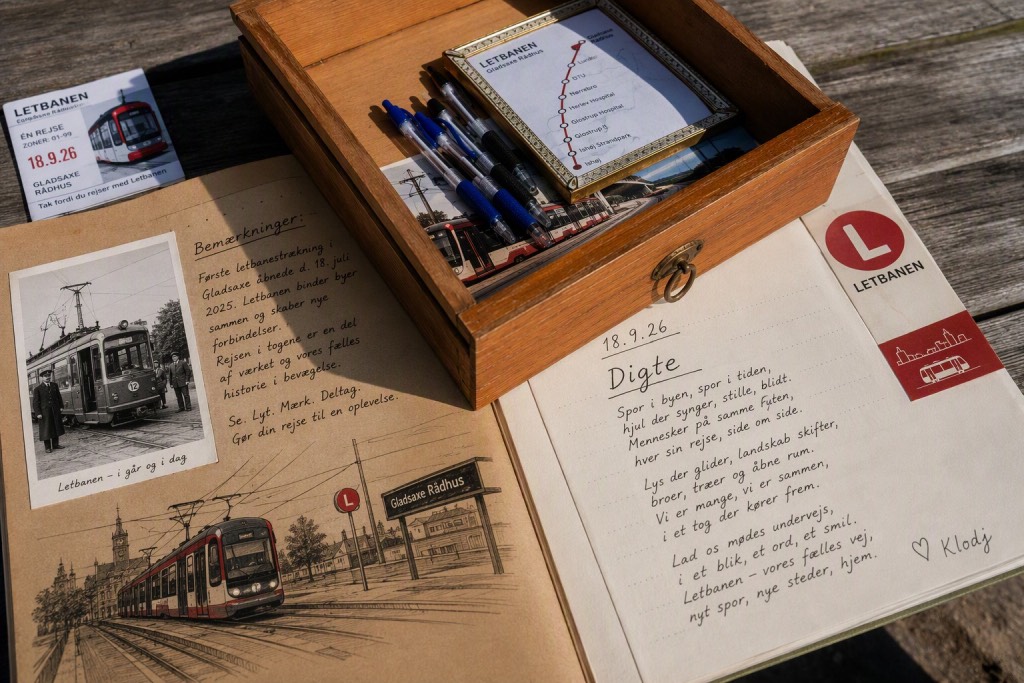 LETBANEN
ÉN REJSE
ZONER: 01-99
18.9.26
GLADSAXE
RÅDHUS
Tak fordi du rejser med Letbanen
LETBANEN
Gladsaxe Rådhus
Gladsaxe
Rådhus
DTU
Nørrebro
Herlev Hospital
Glostrup Hospital
Glostrup
Ishøj Strandpark
Ishøj
Bemærkninger:
Første letbanestrækning i
Gladsaxe åbnede d. 18. juli
2025. Letbanen binder byer
sammen og skaber nye
forbindelser.
Rejsen i togene er en del
af værket og vores fælles
historie i bevægelse.
Se. Lyt. Mærk. Deltag.
Gør din rejse til en oplevelse.
12
Letbanen – i går og i dag
L
Gladsaxe Rådhus
L
LETBANEN
18.9.26
Digte
Spor i byen, spor i tiden,
hjul der synger, stille, blidt.
Mennesker på samme
hver sin rejse, side om side.
Lys der glider, landskab skifter,
broer, træer og åbne rum.
Vi er mange, vi er sammen,
i et tog der kører frem.
Lad os mødes undervejs,
i et blik, et ord, et smil.
Letbanen – vores fælles vej,
nyt spor, nye steder, hjem.
♡ Klodj